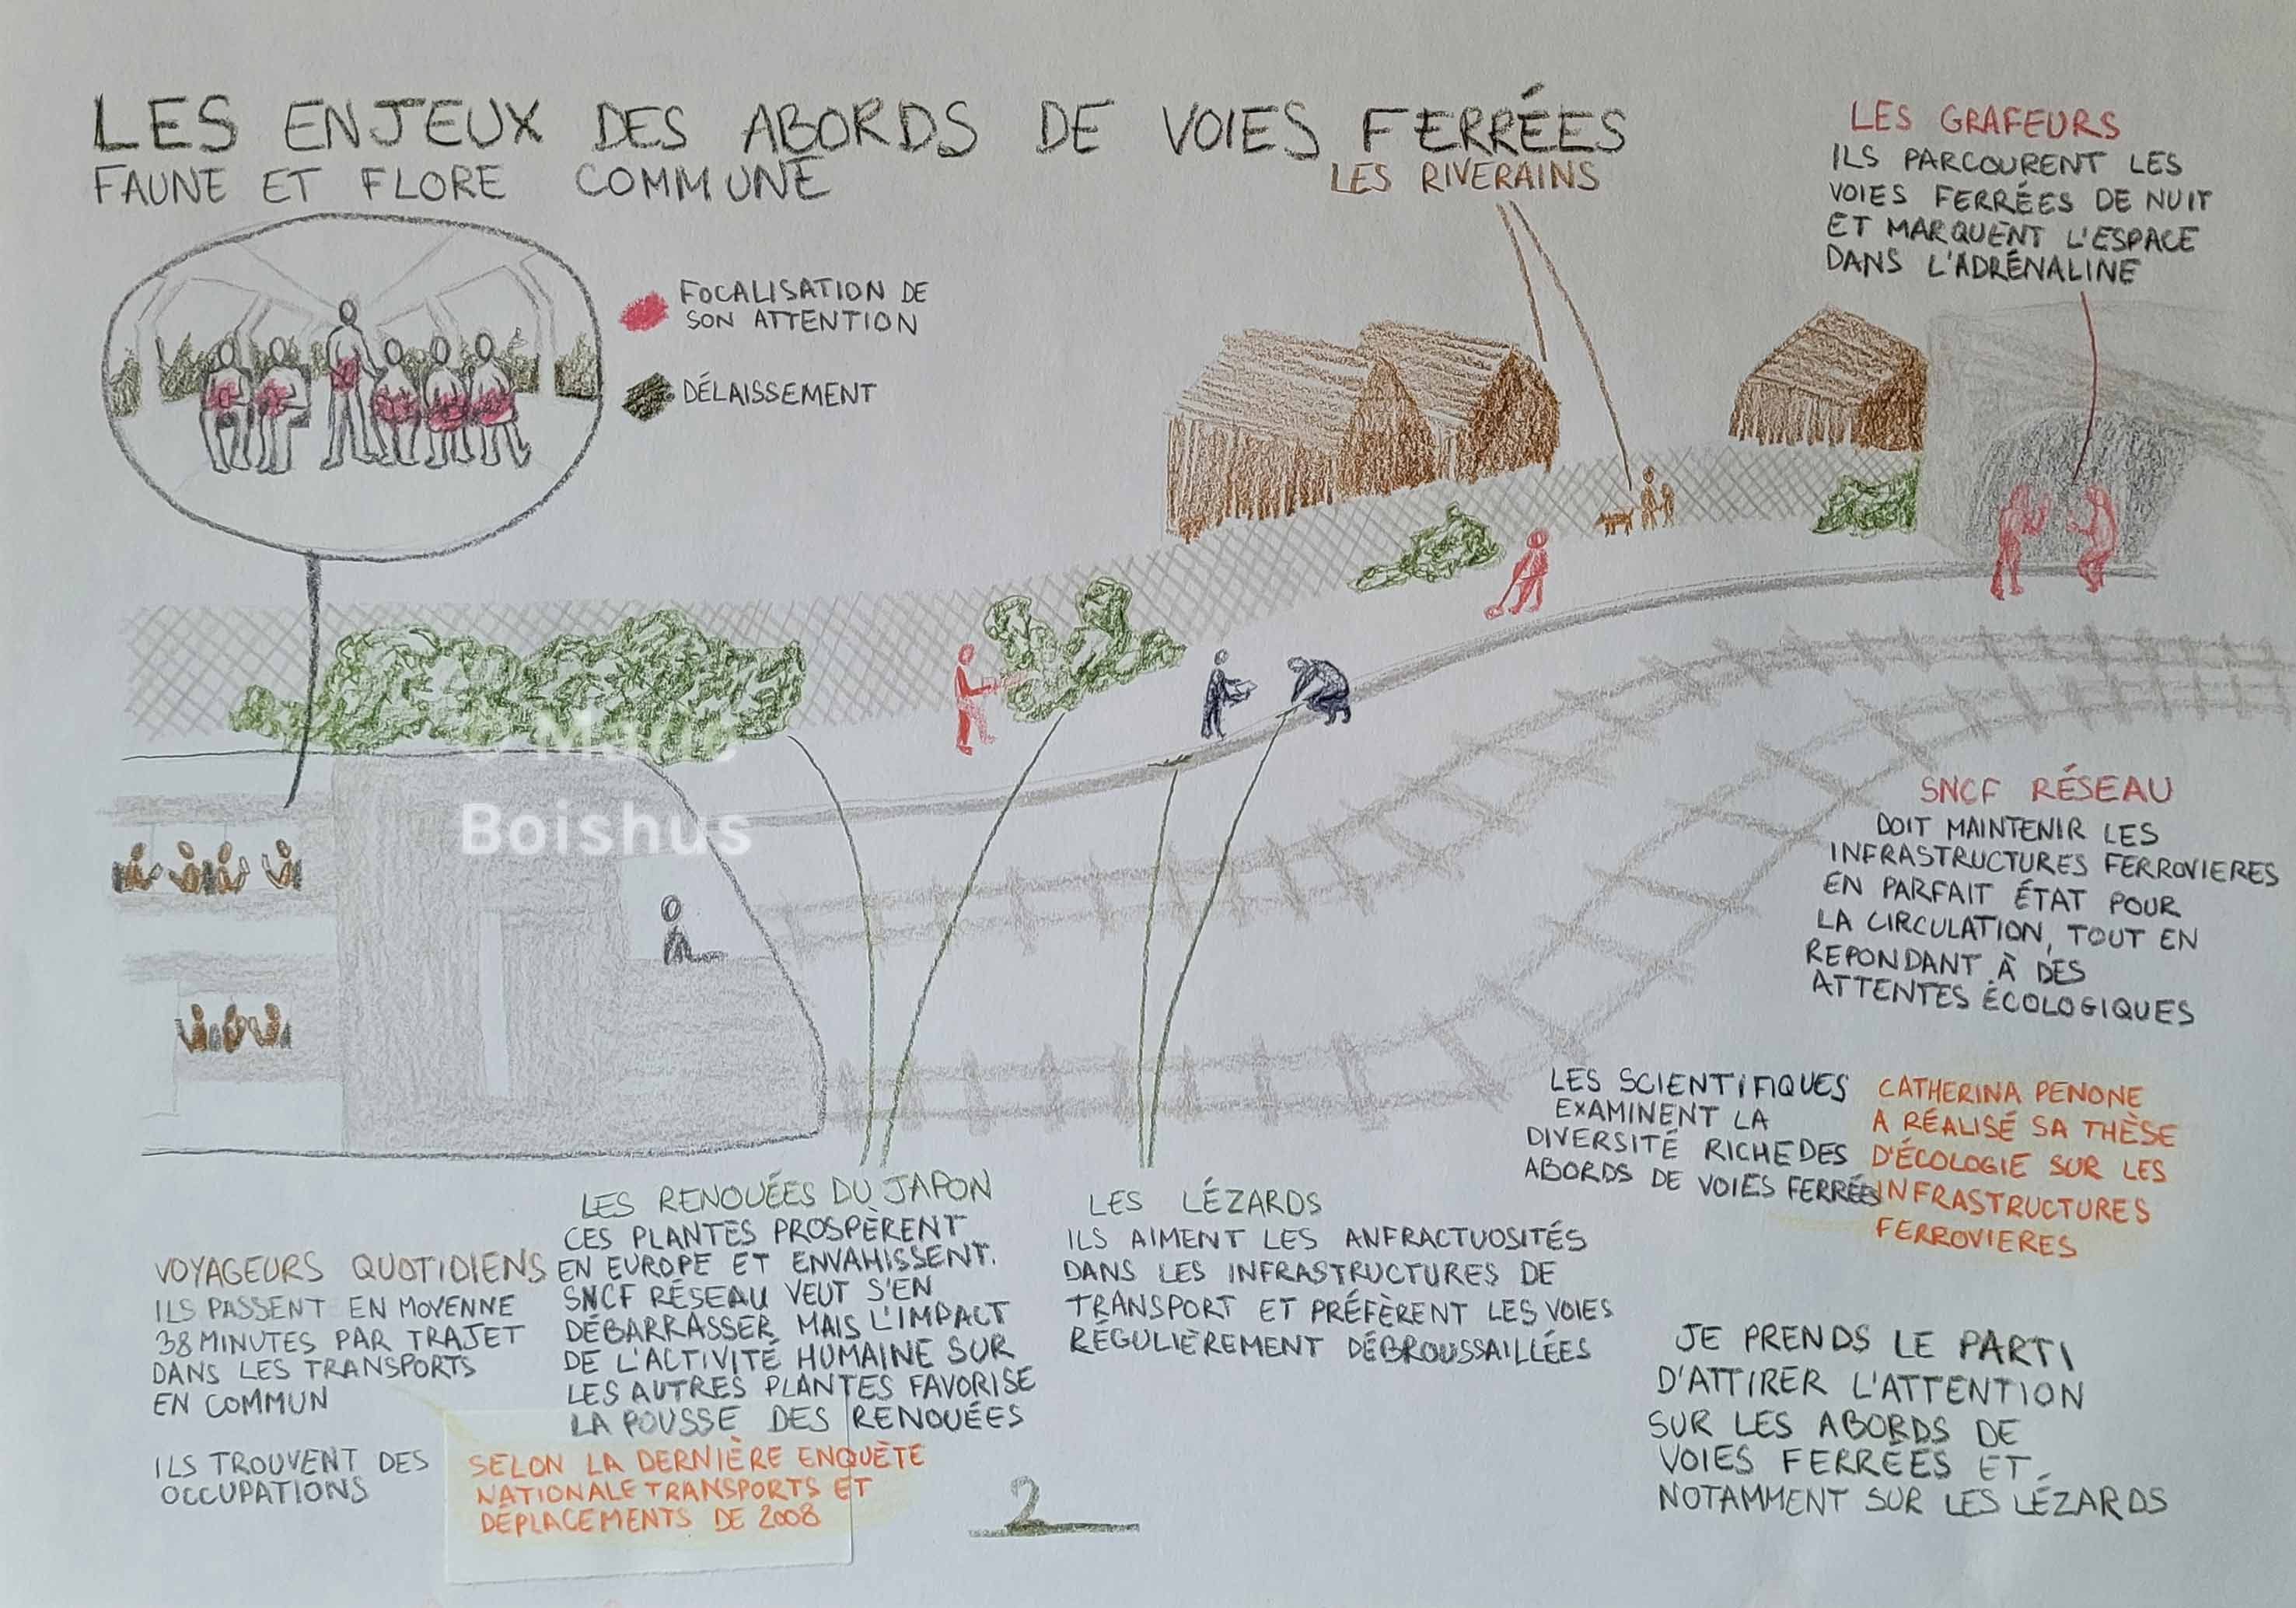 LES ENJEUX DES ABORDS DE VOIES FERRÉES
FAUNE ET FLORE COMMUNE
LES RIVERAINS
LES GRAFEURS
ILS PARCOURENT LES
VOIES FERRÉES DE NUIT
ET MARQUENT L'ESPACE
DANS L'ADRÉNALINE
FOCALISATION DE
SON ATTENTION
DÉLAISSEMENT
Marie
Boishus
SNCF RÉSEAU
DOIT MAINTENIR LES
INFRASTRUCTURES FERROVIERES
EN PARFAIT ÉTAT POUR
LA CIRCULATION, TOUT EN
REPONDANT À DES
ATTENTES ÉCOLOGIQUES
LES SCIENTIFIQUES
EXAMINENT LA
DIVERSITÉ RICHE DES
ABORDS DE VOIES FERRÉES
CATHERINA PENONE
A RÉALISÉ SA THÈSE
D'ÉCOLOGIE SUR LES
INFRASTRUCTURES
FERROVIERES
VOYAGEURS QUOTIDIENS
ILS PASSENT EN MOYENNE
38 MINUTES PAR TRAJET
DANS LES TRANSPORTS
EN COMMUN
ILS TROUVENT DES
OCCUPATIONS
LES RENOUÉES DU JAPON
CES PLANTES PROSPÈRENT
EN EUROPE ET ENVAHISSENT.
SNCF RÉSEAU VEUT S'EN
DÉBARRASSER, MAIS L'IMPACT
DE L'ACTIVITÉ HUMAINE SUR
LES AUTRES PLANTES FAVORISE
LA POUSSE DES RENOUÉES
SELON LA DERNIÈRE ENQUÊTE
NATIONALE TRANSPORTS ET
DÉPLACEMENTS DE 2008
LES LÉZARDS
ILS AIMENT LES ANFRACTUOSITÉS
DANS LES INFRASTRUCTURES DE
TRANSPORT ET PRÉFÈRENT LES VOIES
RÉGULIÈREMENT DÉBROUSSAILLÉES
JE PRENDS LE PARTI
D'ATTIRER L'ATTENTION
SUR LES ABORDS DE
VOIES FERRÉES ET,
NOTAMMENT SUR LES LÉZARDS
2